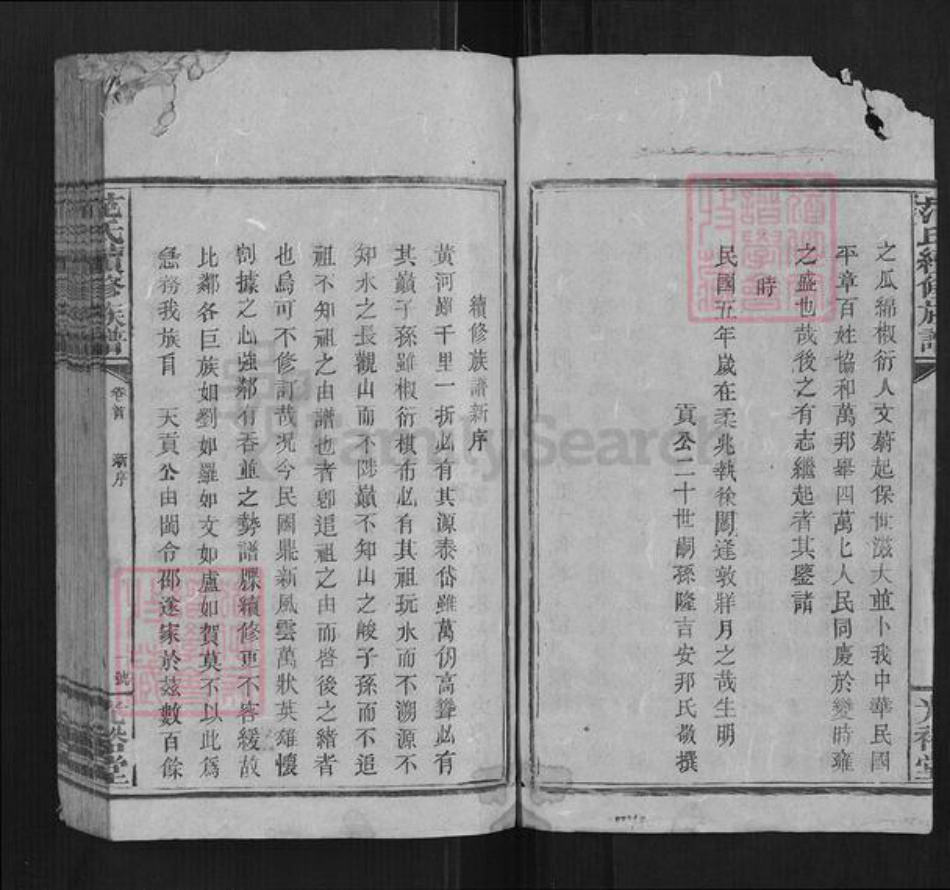 之瓜綿椒衍人文蔚起保世滋大並卜我中華民國
平章百姓協和萬邦舉四萬七人民同慶於變時雍
之盛也哉後之有志繼起者其鑒諸
時
民國五年歲在柔兆執徐閼逢敦牂月之哉生明
貢公二十世嗣孫隆吉安邦氏敬撰
續修族譜新序
黃河雖千里一折必有其源泰岱雖萬仞高聳必有
其巔子孫雖椒衍棋布必有其祖玩水而不溯源不
知水之長觀山而不陟巔不知山之峻子孫而不追
祖不知祖之由譜也者卽追祖之由而啓後之緒者
也烏可不修訂哉况今民國鼎新風雲萬狀英雄懷
割據之心強鄰有吞並之勢譜牒續修更不容緩故
比鄰各巨族如劉如羅如文如盧如賀莫不以此爲
急務我族自 天貢公由閩令邵遂家於茲數百餘
范氏續修族譜
卷首 新序
一號
光裕堂
FamilySearch